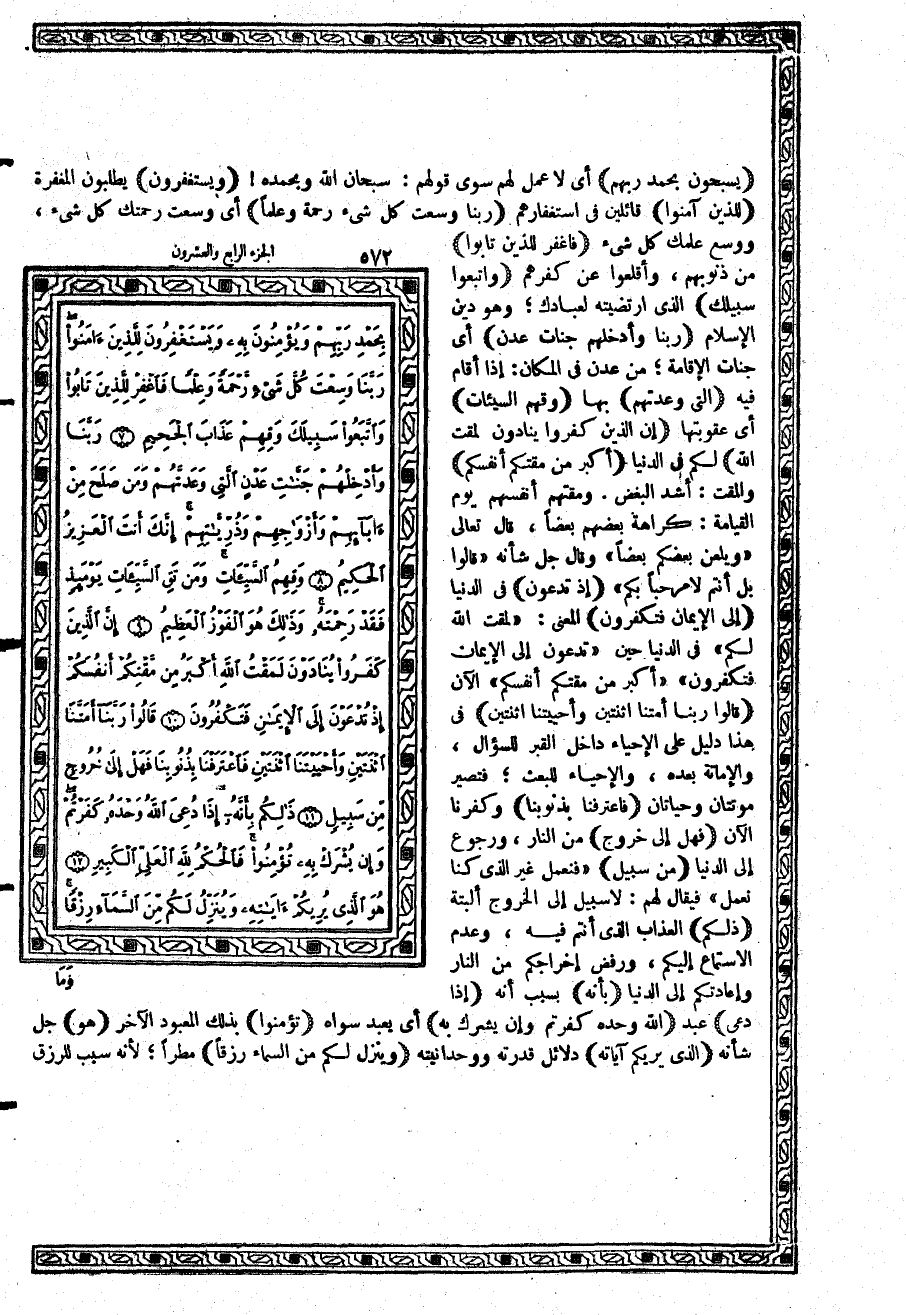 (يسبحون بحمد ربهم) أى لا عمل لهم سوى قولهم : سبحان الله وبحمده ! (ويستغفرون) يطلبون المغفرة
(للذين آمنوا) قائلين فى استغفارهم (ربنا وسعت كل شىء رحمة وعلماً) أى وسعت رحمتك كل شىء ،
ووسع علمك كل شىء (فاغفر للذين تابوا)
من ذنوبهم ، وأقلعوا عن كفرهم (واتبعوا
سبيلك) الذى ارتضيته لعبادك ؛ وهو دين
الإسلام (ربنا وأدخلهم جنات عدن) أى
جنات الإقامة ؛ من عدن فى المكان: إذا أقام
فيه (التى وعدتهم) بها (وقهم السيئات)
أى عقوبتها (إن الذين كفروا ينادون لمقت
الله) لكم فى الدنيا (أكبر من مقتكم أنفسكم)
والمقت : أشد البغض . ومقتهم أنفسهم يوم
القيامة : كراهة بعضهم بعضاً ، قال تعالى
«ويلعن بعضكم بعضاً» وقال جل شأنه «قالوا
بل أنتم لامرحباً بكم» (إذ تدعون) فى الدنيا
(إلى الإيمان فتكفرون) المعنى : «لمقت الله
لكم» فى الدنيا حين «تدعون إلى الإيمان
فتكفرون» «أكبر من مقتكم أنفسكم» الآن
(قالوا ربنا أمتنا اثنتين وأحييتنا اثنتين) فى
هذا دليل على الإحياء داخل القبر للسؤال ،
والإماتة بعده ، والإحياء للبعث ؛ فتصير
موتتان وحياتان (فاعترفنا بذنوبنا) وكفرنا
الآن (فهل إلى خروج) من النار ، ورجوع
إلى الدنيا (من سبيل) «فنعمل غير الذى كنا
نعمل» فيقال لهم : لاسبيل إلى الخروج ألبتة
(ذلكم) العذاب الذى أنتم فيه ، وعدم
الاستماع إليكم ، ورفض إخراجكم من النار
وإعادتكم إلى الدنيا (بأنه) بسبب أنه (إذا
دعى) عبد (الله وحده كفرتم وإن يشرك به) أى يعبد سواه (تؤمنوا) بذلك المعبود الآخر (هو) جل
شأنه (الذى يريكم آياته) دلائل قدرته ووحدانيته (وينزل لكم من السماء رزقاً) مطراً ؛ لأنه سبب للرزق
الجزء الرابع والعشرون
٥٧٢
بِحَمْدِ رَبِّهِمْ وَيُؤْمِنُونَ بِهِۦ وَيَسْتَغْفِرُونَ لِلَّذِينَ ءَامَنُواْ
رَبَّنَا وَسِعْتَ كُلَّ شَىْءٍ رَّحْمَةً وَعِلْمًا فَٱغْفِرْ لِلَّذِينَ تَابُواْ
وَٱتَّبَعُواْ سَبِيلَكَ وَقِهِمْ عَذَابَ ٱلْجَحِيمِ ٧ رَبَّنَا
وَأَدْخِلْهُمْ جَنَّٰتِ عَدْنٍ ٱلَّتِى وَعَدتَّهُمْ وَمَن صَلَحَ مِنْ
ءَابَآئِهِمْ وَأَزْوَٰجِهِمْ وَذُرِّيَّٰتِهِمْ ۚ إِنَّكَ أَنتَ ٱلْعَزِيزُ
ٱلْحَكِيمُ ٨ وَقِهِمُ ٱلسَّيِّـَٔاتِ ۚ وَمَن تَقِ ٱلسَّيِّـَٔاتِ يَوْمَئِذٍ
فَقَدْ رَحِمْتَهُۥ ۚ وَذَٰلِكَ هُوَ ٱلْفَوْزُ ٱلْعَظِيمُ ٩ إِنَّ ٱلَّذِينَ
كَفَرُواْ يُنَادَوْنَ لَمَقْتُ ٱللَّهِ أَكْبَرُ مِن مَّقْتِكُمْ أَنفُسَكُمْ
إِذْ تُدْعَوْنَ إِلَى ٱلْإِيمَٰنِ فَتَكْفُرُونَ ١٠ قَالُواْ رَبَّنَآ أَمَتَّنَا
ٱثْنَتَيْنِ وَأَحْيَيْتَنَا ٱثْنَتَيْنِ فَٱعْتَرَفْنَا بِذُنُوبِنَا فَهَلْ إِلَىٰ خُرُوجٍ
مِّن سَبِيلٍ ١١ ذَٰلِكُم بِأَنَّهُۥٓ إِذَا دُعِىَ ٱللَّهُ وَحْدَهُۥ كَفَرْتُمْ ۖ
وَإِن يُشْرَكْ بِهِۦ تُؤْمِنُواْ ۚ فَٱلْحُكْمُ لِلَّهِ ٱلْعَلِىِّ ٱلْكَبِيرِ ١٢
هُوَ ٱلَّذِى يُرِيكُمْ ءَايَٰتِهِۦ وَيُنَزِّلُ لَكُم مِّنَ ٱلسَّمَآءِ رِزْقًا ۚ
وَمَا